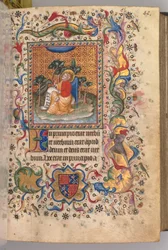 In principio erat verbu
et verbum erat apud
deum et deus erat ver
bum. hoc erat in principio a